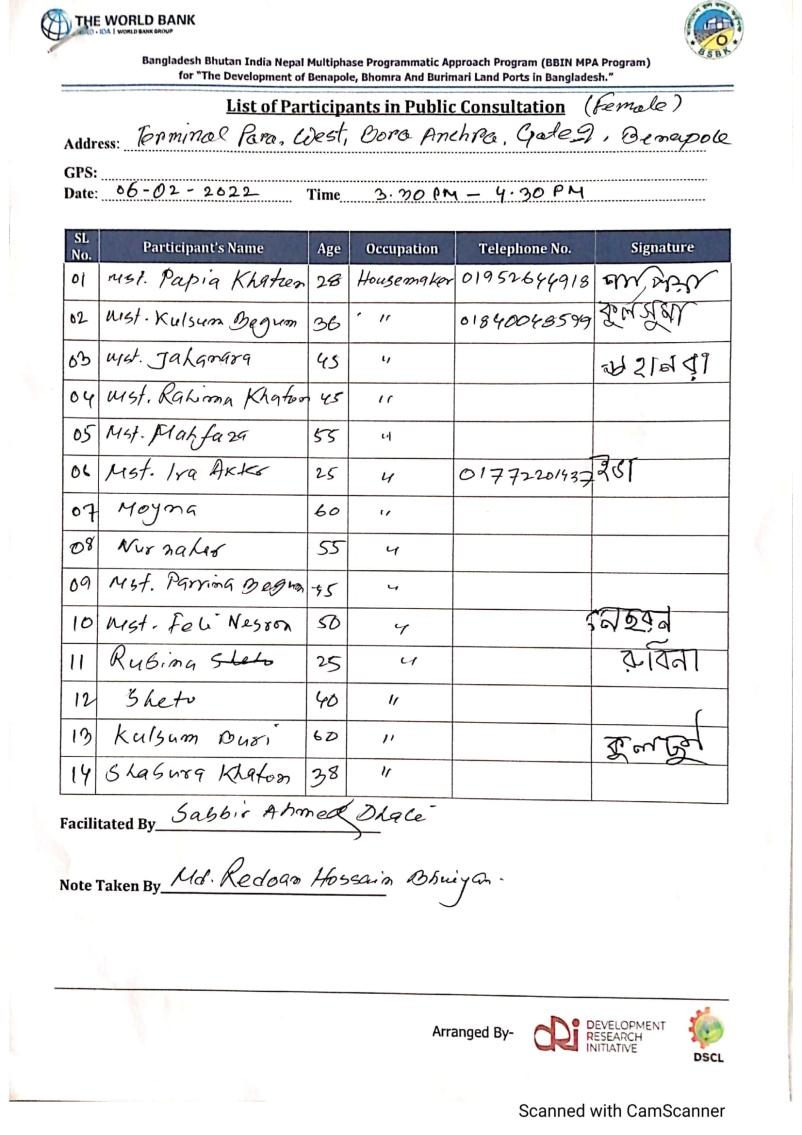 THE WORLD BANK
IBRD • IDA | WORLD BANK GROUP
BSBK
Bangladesh Bhutan India Nepal Multiphase Programmatic Approach Program (BBIN MPA Program)
for "The Development of Benapole, Bhomra And Burimari Land Ports in Bangladesh."
List of Participants in Public Consultation (Female)
Address: Terminal Para, West, Bora Anchra, Gate 2, Benapole
GPS:
Date: 06-02-2022 Time 3.30 PM - 4.30 PM
SL No. Participant's Name Age Occupation Telephone No. Signature
01 Mst. Papia Khatun 28 Housemaker 01952644918 পাপিয়া
02 Mst. Kulsum Begum 36 " 01840048599 কুলসুমা
03 Mst. Jahanara 45 " জাহানারা
04 Mst. Rahima Khaton 45 "
05 Mst. Mahfaza 55 "
06 Mst. Ira Akter 25 " 01772201437 ইভা
07 Moyna 60 "
08 Nurnaher 55 "
09 Mst. Parrina Begum 45 "
10 Mst. Feli Nesron 50 " নেছরন
11 Rubina 25 " রুবিনা
12 Sheto 40 "
13 Kulsum Buri 60 " কুলছুম
14 Shabura Khaton 38 "
Facilitated By Sabbir Ahmed Dhali
Note Taken By Md. Redoan Hossain Bhuiyan.
Arranged By- dRi DEVELOPMENT
RESEARCH
INITIATIVE
DSCL
Scanned with CamScanner